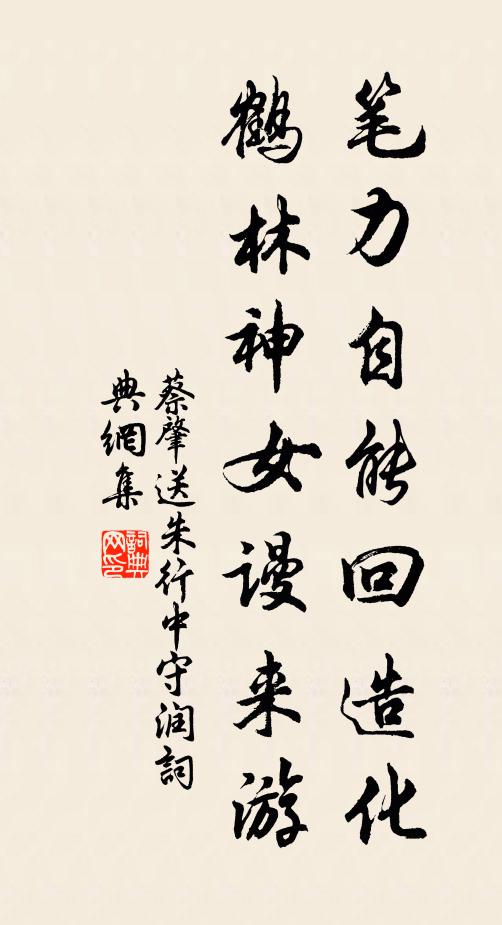 笔力自能回造化
鹤林神女谩来游
蔡肇送朱行中守润詞
典網集
詞典
网印